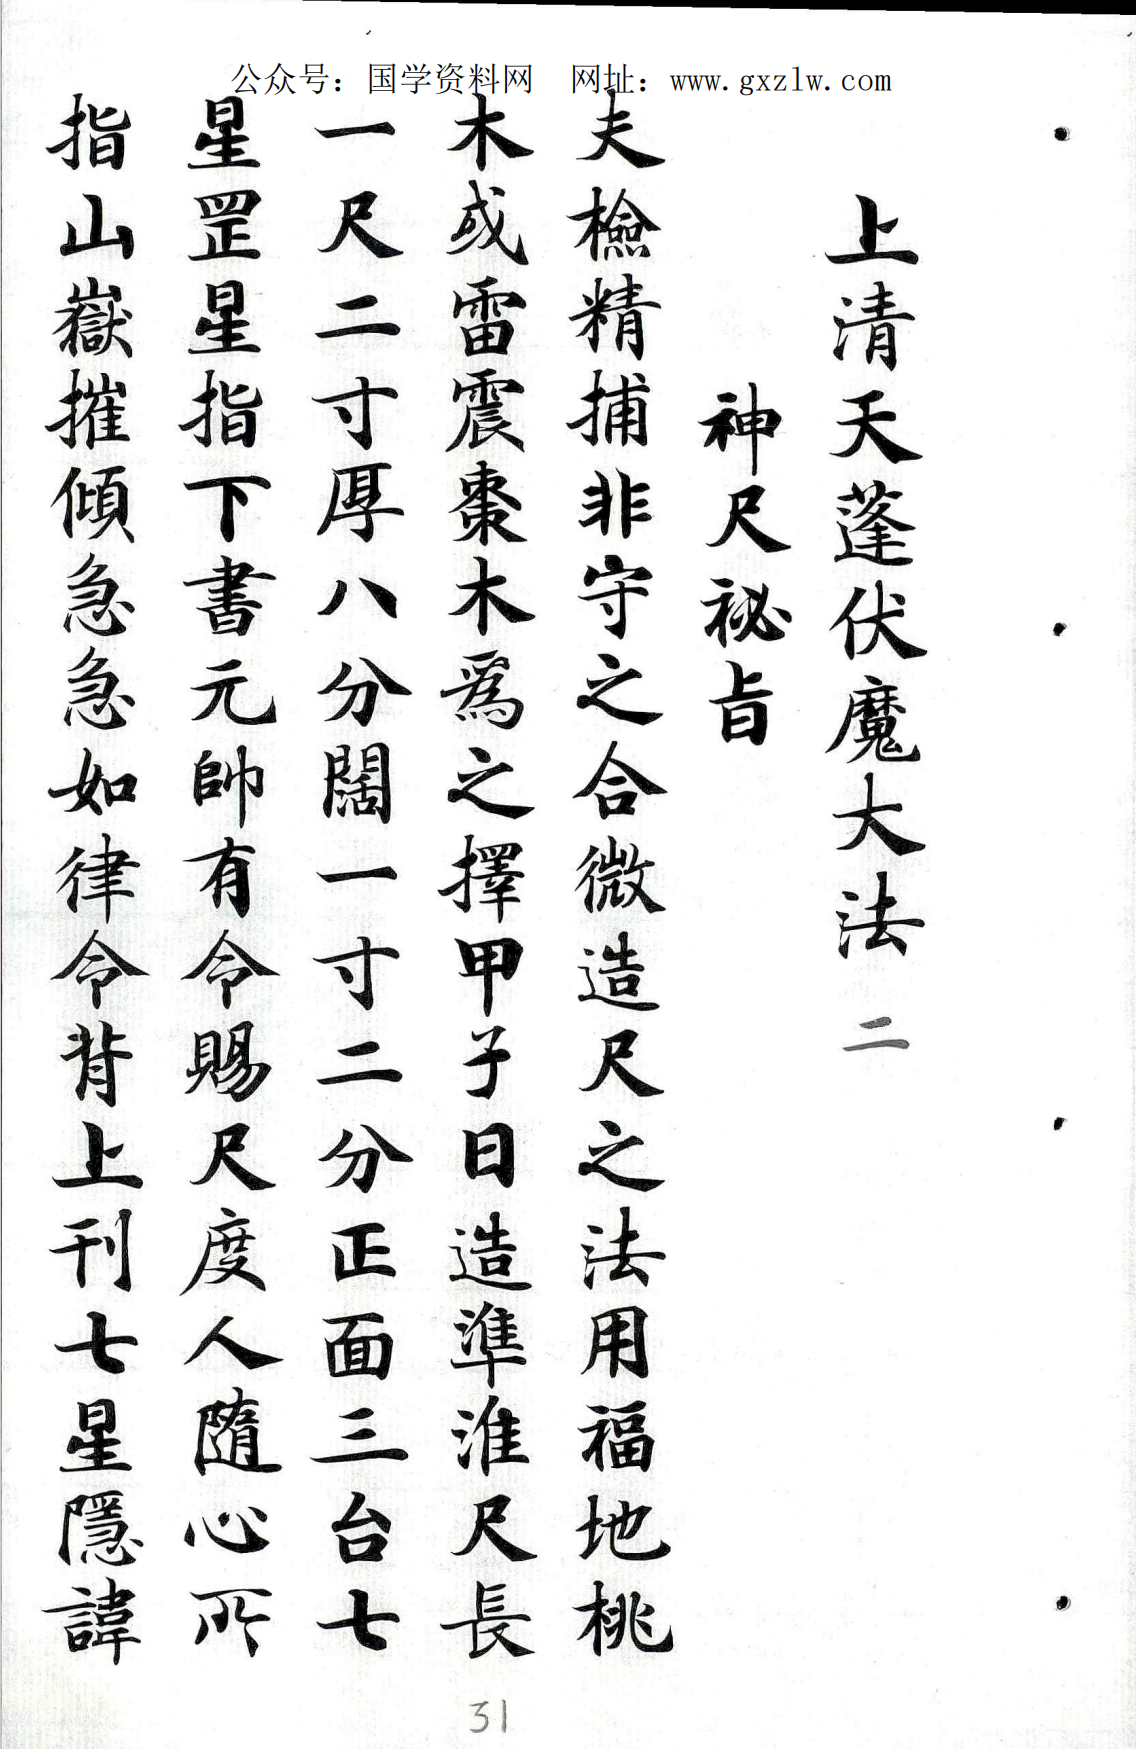 公众号：国学资料网 网址：www.gxzlw.com
上清天蓬伏魔大法 二
神尺祕旨
夫檢精捕非守之合微造尺之法用福地桃
木或雷震棗木爲之擇甲子日造準淮尺長
一尺二寸厚八分闊一寸二分正面三台七
星罡星指下書元帥有令賜尺度人隨心所
指山嶽摧傾急急如律令背上刊七星隱諱
31